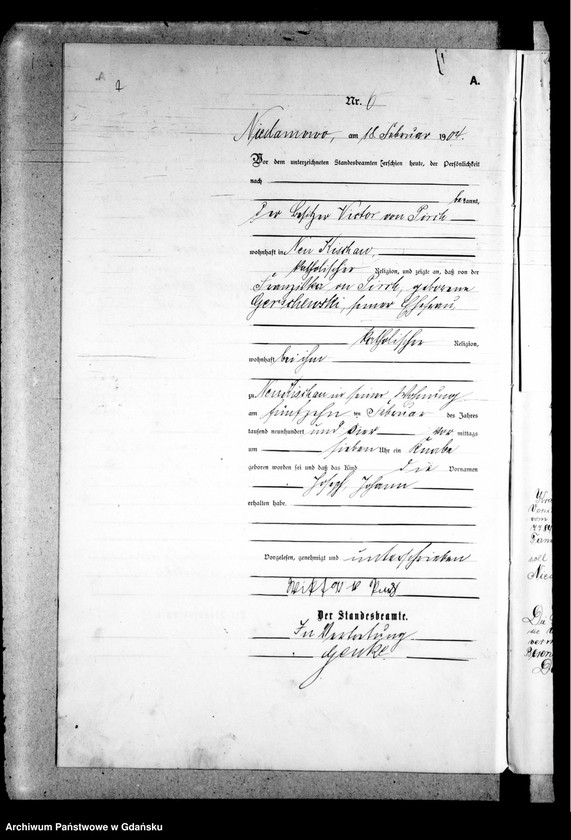 A.
Nr. 6
Niedamowo, am 18 Februar 1904.
Vor dem unterzeichneten Standesbeamten erschien heute, der Persönlichkeit
nach
be kannt,
Der Besitzer Victor von Pirch
wohnhaft in Neu Kischau,
katholischer Religion, und zeigte an, daß von der
Franziska von Pirch, geborene
Gerschewski, seiner Ehefrau,
katholischer Religion,
wohnhaft bei ihm
zu Neu Kischau in seiner Wohnung
am fünfzehn ten Februar des Jahres
tausend neunhundert und vier vor mittags
um sieben Uhr ein Knabe
geboren worden sei und daß das Kind die Vornamen
Joseph Johann
erhalten habe.
Vorgelesen, genehmigt und unterschrieben
Der Standesbeamte.
In Vertretung
Genke.
Archiwum Państwowe w Gdańsku